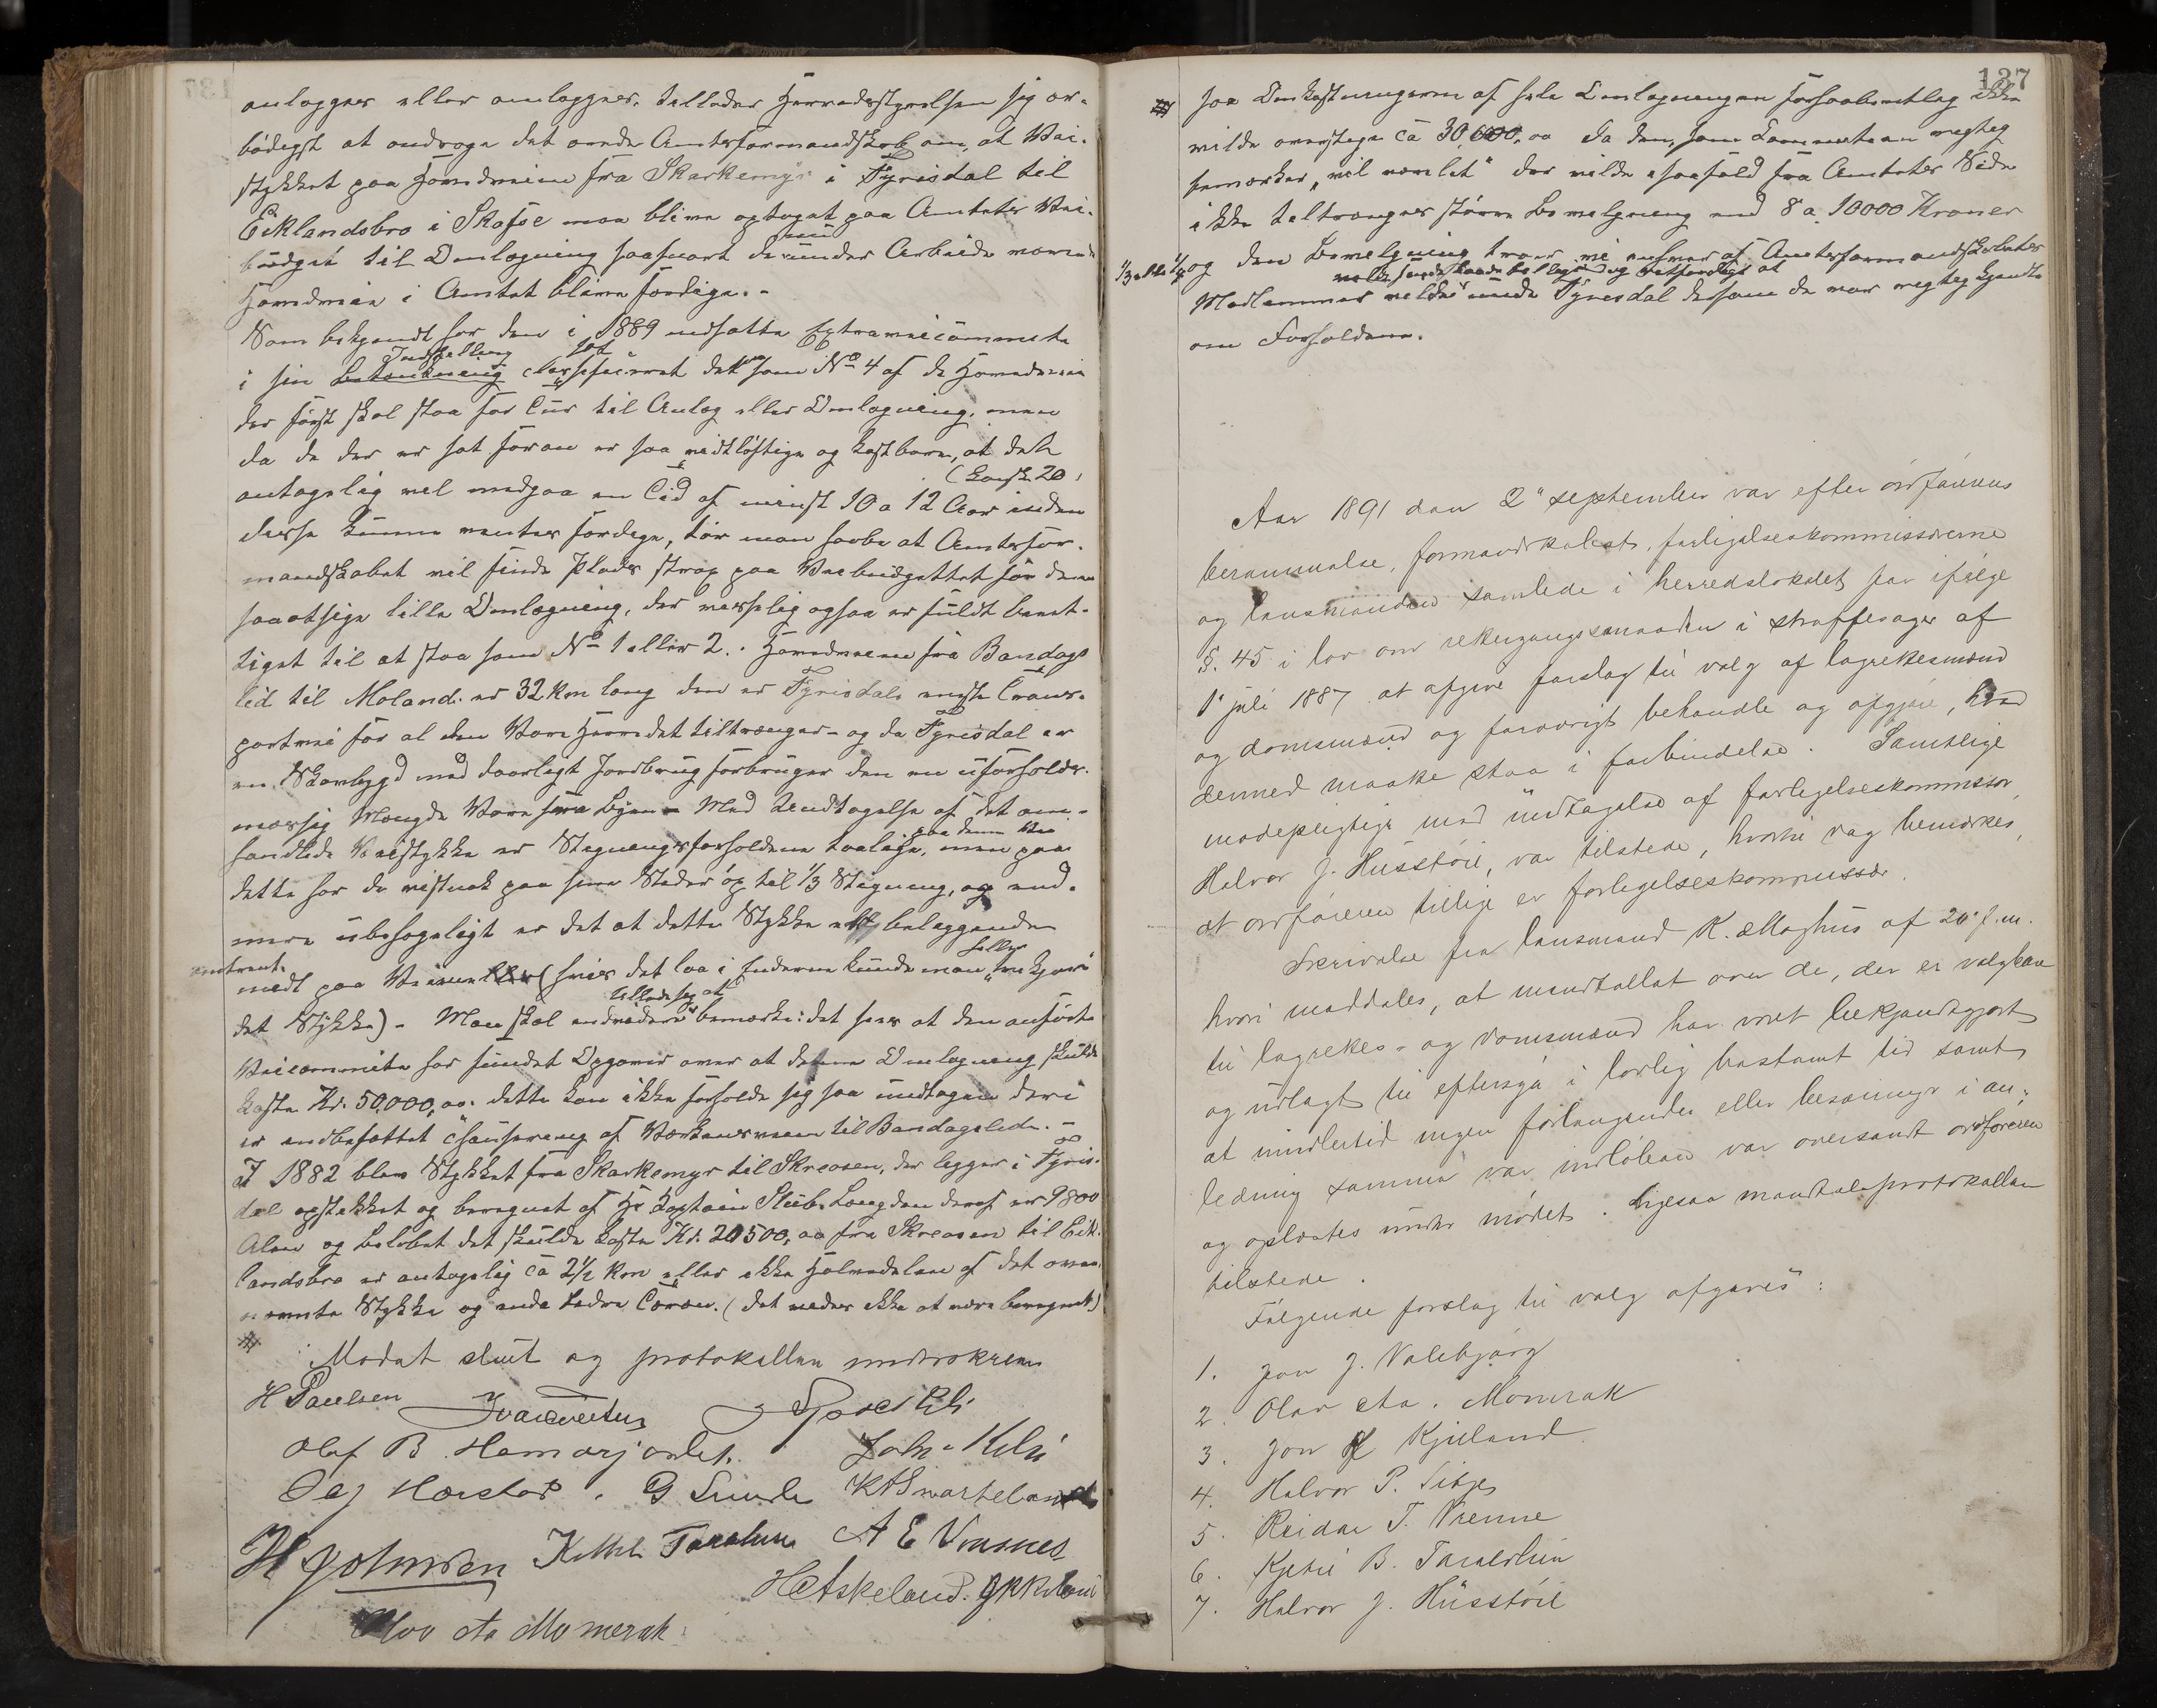 anlægges eller omlægges, tillader Herredsstyrelsen sig ær-
bødigst at andrage det ærede Amtsformandskab om, at Vei-
stykket paa Hovedveien fra Skarkemyr i Fyrisdal til
Eiklandsbro i Skafse maa blive optaget paa Amtets Vei-
büdget til Omlægning saasnart de nü ünder Arbeide værende
Hovedveie i Amtet blive færdige. -
Som bekjendt har den i 1889 nedsatte Extraveicommite
i sin Indstilling sat det som No 4 af de Hovedveie
der først skal staa for Tür til Anlæg eller Omlægning, men
da de der er sat foran er saa vidtløftige og kostbare, at det
antagelig vil medgaa en Tid af mindst 10 a 12 Aar inden (kansk. 20)
disse künne ventes færdige, tør man haabe at Amtsfor-
mandskabet vil finde Plads strax paa Veibüdgettet for denne
saaatsige lille Omlægning, der verkelig ogsaa er füldt beret-
tiget til at staa som No 1 eller 2. - Hovedveien fra Bandags
lid til Moland er 32 Km lang den er Fyrisdals eneste Trans-
portvei for al den Vare Herredet tiltrænger - og da Fyrisdal er
en Skovbygd med daarligt Jordbrüg forbrüger den en üforholds-
mæssig Mængde Vare fra Byen - Med Undtagelse af det om-
handlede Veistykke er Stigningsforholdene taalige, men paa
dette har de vistnok paa sine Steder op til 1/3 Stigning, og end-
mere übehageligt er det at dette Stykke er beliggende
omtrent midt paa Veien (hvis det laa i Enderne künde man heller
det Stykke) - Man skal endvidere tillade sig at bemærke: det sees at den anførte
Veicommite har fündet Opgaver over at denne Omlægning skülde
koste Kr. 50,000,00. dette kan ikke forholde sig saa undtagen deri
er indbefattet af til Bandagslide. -
I 1882 blev Stykket fra Skarkemyr til Skreosen, der ligger i Fyris-
dal opstikket og beregnet af Hr Kaptein Stüb. Længden deraf er 9800
Alen og beløbet det skülde koste Kr. 20500,00 fra Skreosen til Eik-
landsbro er antagelig ca 2 1/2 Km eller ikke Halvedelen af det oven-
nævnte Stykke og ende bedre Terræn. (det vides ikke at være beregnet)
Mødet slut og protokollen underskreven
H Paulsen
Olaf B. Hamarjordet. John Kili
G Sunde K A Svarteland
H Johnsen Kittil Taraldlien A E Vraanes
H Askeland.
Olav Aa Momrak
137
for Omkostningerne af hele Omlægningen forhaabentlig ikke
vilde overstige ca 30,000,00 da den, som Commiteen rigtig
bemærker, "vil været" der vilde isaafald fra Amtets Side
ikke tiltrænges større Bevilgning end 8 a 10000 Kroner
1/3 eller 1/4 og den Bevilgning troer vi enhver af Amtsformandskabets
Medlemmer vilde finde baade billigt og retfærdigt at ünde Fyrisdal dersom de var rigtig kjendte
om Forholdene.
Aar 1891 den 2" september var efter ordførerens
berammelse, formandskabet, forligelseskommissærerne
og lensmanden samlede i herredslokalet for ifølge
§. 45 i lov om rettergangsmaaden i straffesager af
1' juli 1887 at afgive forslag til valg af lagrettesmænd
og domsmænd og forøvrigt behandle og afgjøre, hvad
dermed maatte staa i forbindelse. Samtlige
mødepligtige med undtagelse af forligelseskommissær
Halvor J. Hüsstøil, var tilstede, hvorhos bemærkes,
at ordføreren tillige er forligelseskommissær.
Skrivelse fra lensmand K. Moghus af 20' f. m.
hvori meddeles, at mandtallet over de, der er valgbare
til lagrettes- og domsmænd har været bekjendtgjort
og udlagt til eftersyn i lovlig bestemt tid samt
at imidlertid ingen forlangender eller besværinger i an-
ledning samme var indløbne var oversendt ordføreren
og oplæstes under mødet. Ligesaa mandtalsprotokollen
tilstede.
Følgende forslag til valg afgaves:
1. Jon J. Valebjørg
2. Olav Aa. Momrak
3. Jon H Kjiland
4. Halvor P. Sitje
5. Reidar T. Vrenne
6. Kjetil B. Taraldlien
7. Halvor J. Hüsstøil